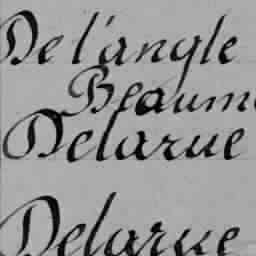 De l'angle
Beaum
Delarue
Delarue